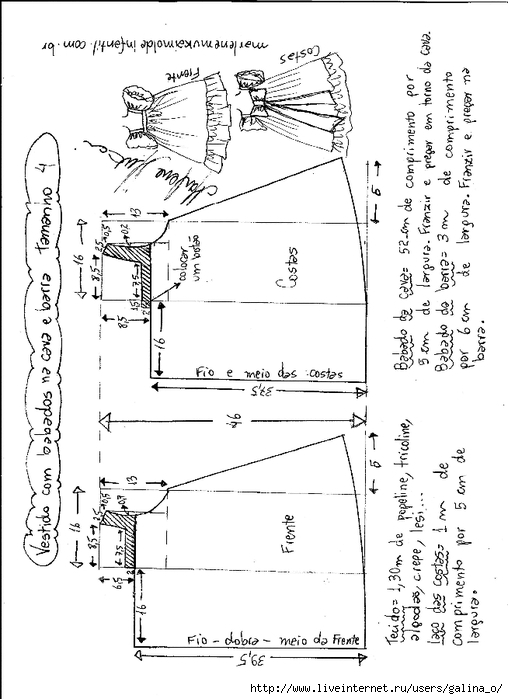 Vestido com babados na cava e barra tamanho 4
marlenemukaimoldeinfantil.com.br
Frente
Costas
Marlene Mukai
16
13
0,5
2,5
0,7
8,5
7,5
8,5
1,5
2
colocar
um botão
Costas
16
Fio e meio das costas
37,5
6
46
16
13
0,5
2,5
0,7
8,5
7,5
6,5
2
Frente
16
Fio - dobra - meio da Frente
39,5
6
Babado da cava= 52 cm de comprimento por
5 cm de largura. Franzir e pregar em torno da cava.
Babado da barra= 3 m de comprimento
por 6 cm de largura. Franzir e pregar na
barra.
Tecido= 1,30 m de popeline, tricoline,
algodão, crepe, lesi...
laço das costas= 1 m de
comprimento por 5 cm de
largura.
http://www.liveinternet.ru/users/galina_o/